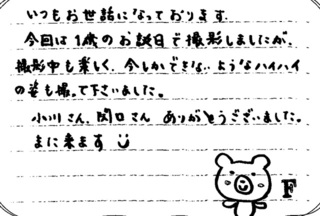 いつもお世話になっております。
今回は1歳のお誕日で撮影しましたが、
撮影中も楽しく、今しかできないようなハイハイ
の姿も撮って下さいました。
小川さん、関口さん ありがとうございました。
また来ます
F